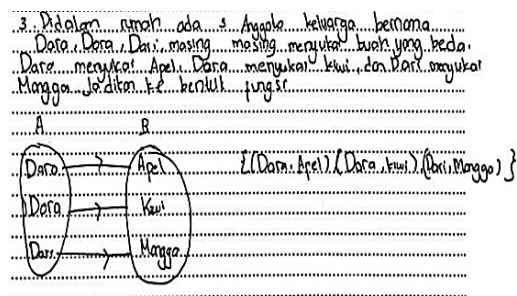 3. Didalam rumah ada 3 Anggota keluarga bernama
Dara, Dora, Dari, masing masing menyukai buah yang beda.
Dara menyukai Apel, Dora menyukai kiwi, dan Dari menyukai
Mangga. Jadikan ke bentuk fungsi
A B
Dara Apel {(Dara, Apel), (Dora, kiwi), (Dari, Mangga)}
Dora Kiwi
Dari Mangga